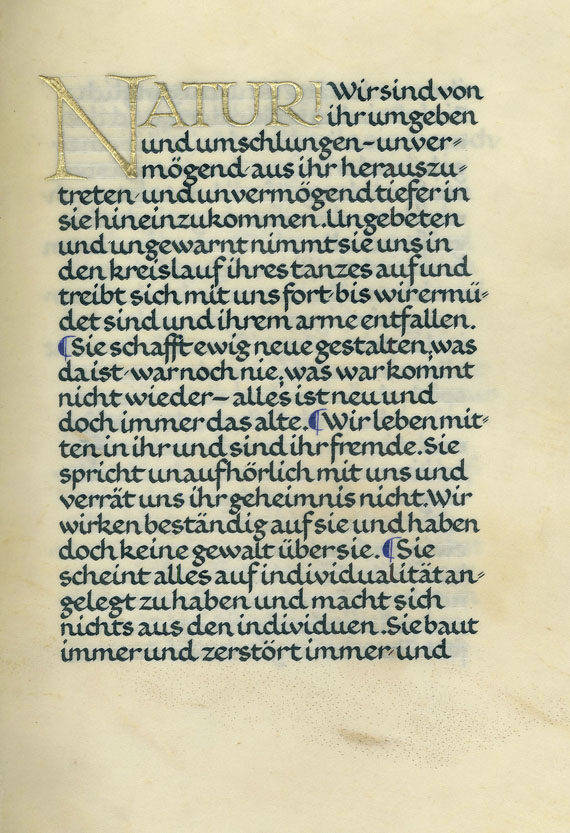 NATUR! Wir sind von
ihr umgeben
und umschlungen – unver⸗
mögend aus ihr herauszu⸗
treten und unvermögend tiefer in
sie hineinzukommen. Ungebeten
und ungewarnt nimmt sie uns in
den kreislauf ihres tanzes auf und
treibt sich mit uns fort bis wir ermü⸗
det sind und ihrem arme entfallen.
¶Sie schafft ewig neue gestalten, was
da ist war noch nie, was war kommt
nicht wieder – alles ist neu und
doch immer das alte. ¶Wir leben mit⸗
ten in ihr und sind ihr fremde. Sie
spricht unaufhörlich mit uns und
verrät uns ihr geheimnis nicht. Wir
wirken beständig auf sie und haben
doch keine gewalt über sie. ¶Sie
scheint alles auf individualität an⸗
gelegt zu haben und macht sich
nichts aus den individuen. Sie baut
immer und zerstört immer und